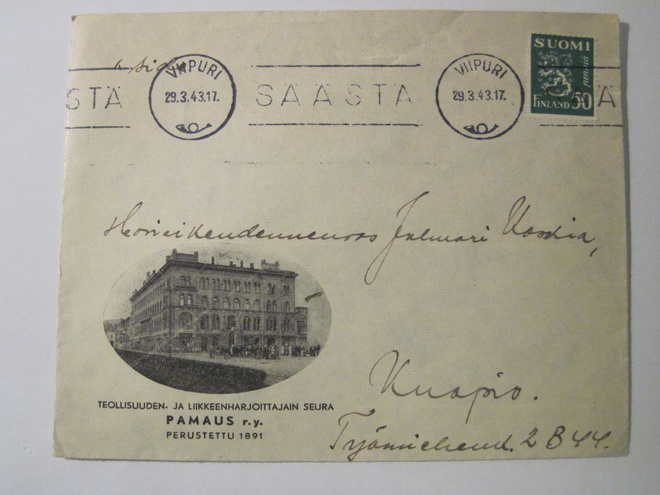 VIIPURI
29.3.43.17.
STÄ SÄÄSTÄ Ä
VIIPURI
29.3.43.17.
SUOMI
FINLAND 50
Jalmari
TEOLLISUUDEN- JA LIIKKEENHARJOITTAJAIN SEURA
PAMAUS r.y.
PERUSTETTU 1891
Kuopio.
2 B 44.